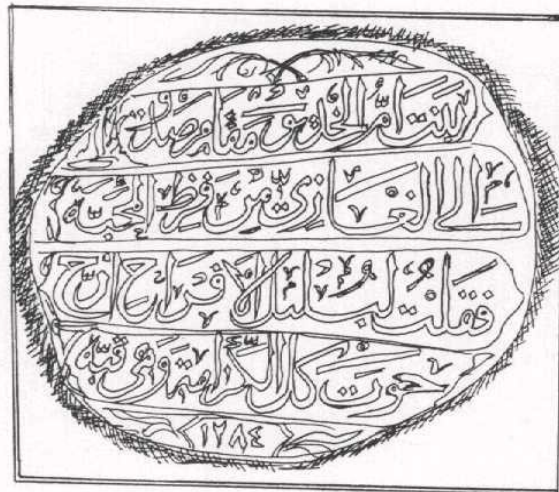 لبنت ام الخديو مقام صدق
الى الغازي من فرط المحبة
فقلت لبلبل الافراح ارخ
حوت كل الكرامة وهي قبة
١٢٨٤